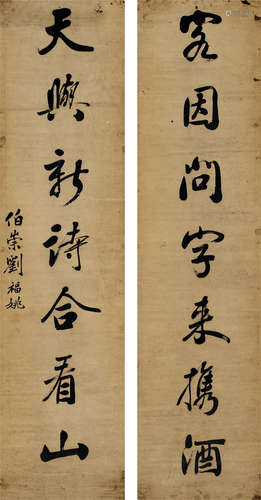 客因问字来携酒
天与新诗合看山
伯崇劉福姚